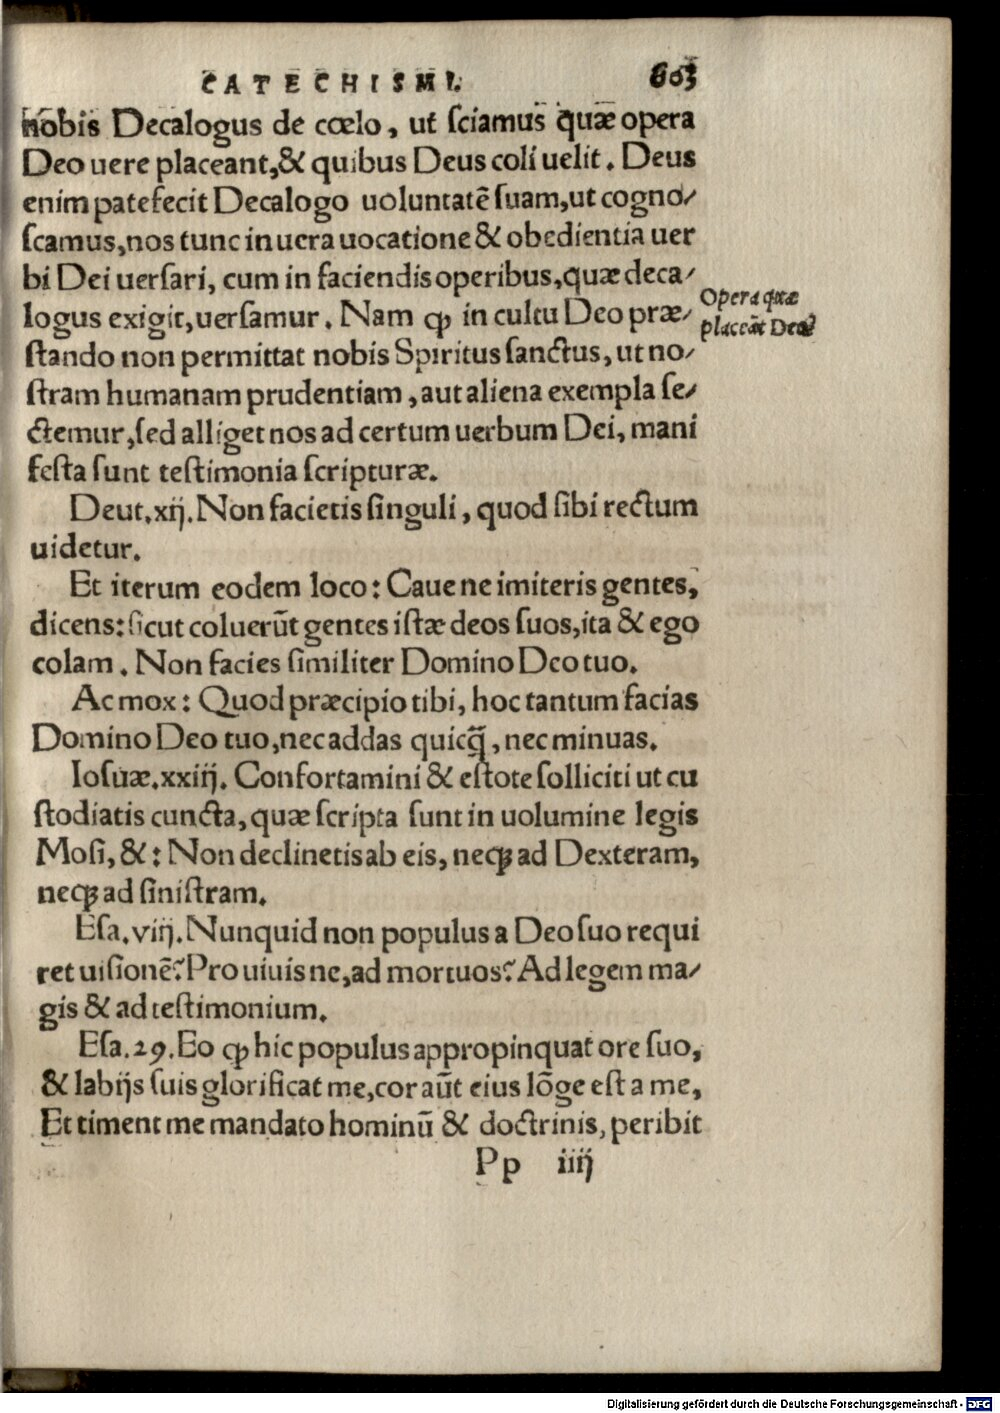 CATECHISMI. 603
nobis Decalogus de cœlo, ut sciamus quæ opera
Deo uere placeant, & quibus Deus coli uelit. Deus
enim patefecit Decalogo uoluntatē suam, ut cogno/
scamus, nos tunc in uera uocatione & obedientia uer
bi Dei uersari, cum in faciendis operibus, quæ deca/
logus exigit, uersamur. Nam ꝙ in cultu Deo præ/
stando non permittat nobis Spiritus sanctus, ut no/
stram humanam prudentiam, aut aliena exempla se/
ctemur, sed alliget nos ad certum uerbum Dei, mani
festa sunt testimonia scripturæ.
Opera quæ
placeāt Deo
Deut. xij. Non facietis singuli, quod sibi rectum
uidetur.
Et iterum eodem loco: Caue ne imiteris gentes,
dicens: sicut coluerūt gentes istæ deos suos, ita & ego
colam. Non facies similiter Domino Deo tuo.
Ac mox: Quod præcipio tibi, hoc tantum facias
Domino Deo tuo, nec addas quicq̃, nec minuas.
Iosuæ. xxiij. Confortamini & estote solliciti ut cu
stodiatis cuncta, quæ scripta sunt in uolumine legis
Mosi, &: Non declinetis ab eis, neqꝫ ad Dexteram,
neqꝫ ad sinistram.
Esa. viij. Nunquid non populus a Deo suo requi
ret uisionē? Pro uiuis ne, ad mortuos? Ad legem ma/
gis & ad testimonium.
Esa. 29. Eo ꝙ hic populus appropinquat ore suo,
& labijs suis glorificat me, cor aūt eius lōge est a me,
Et timent me mandato hominū & doctrinis, peribit
Pp iiij
Digitalisierung gefördert durch die Deutsche Forschungsgemeinschaft - DFG